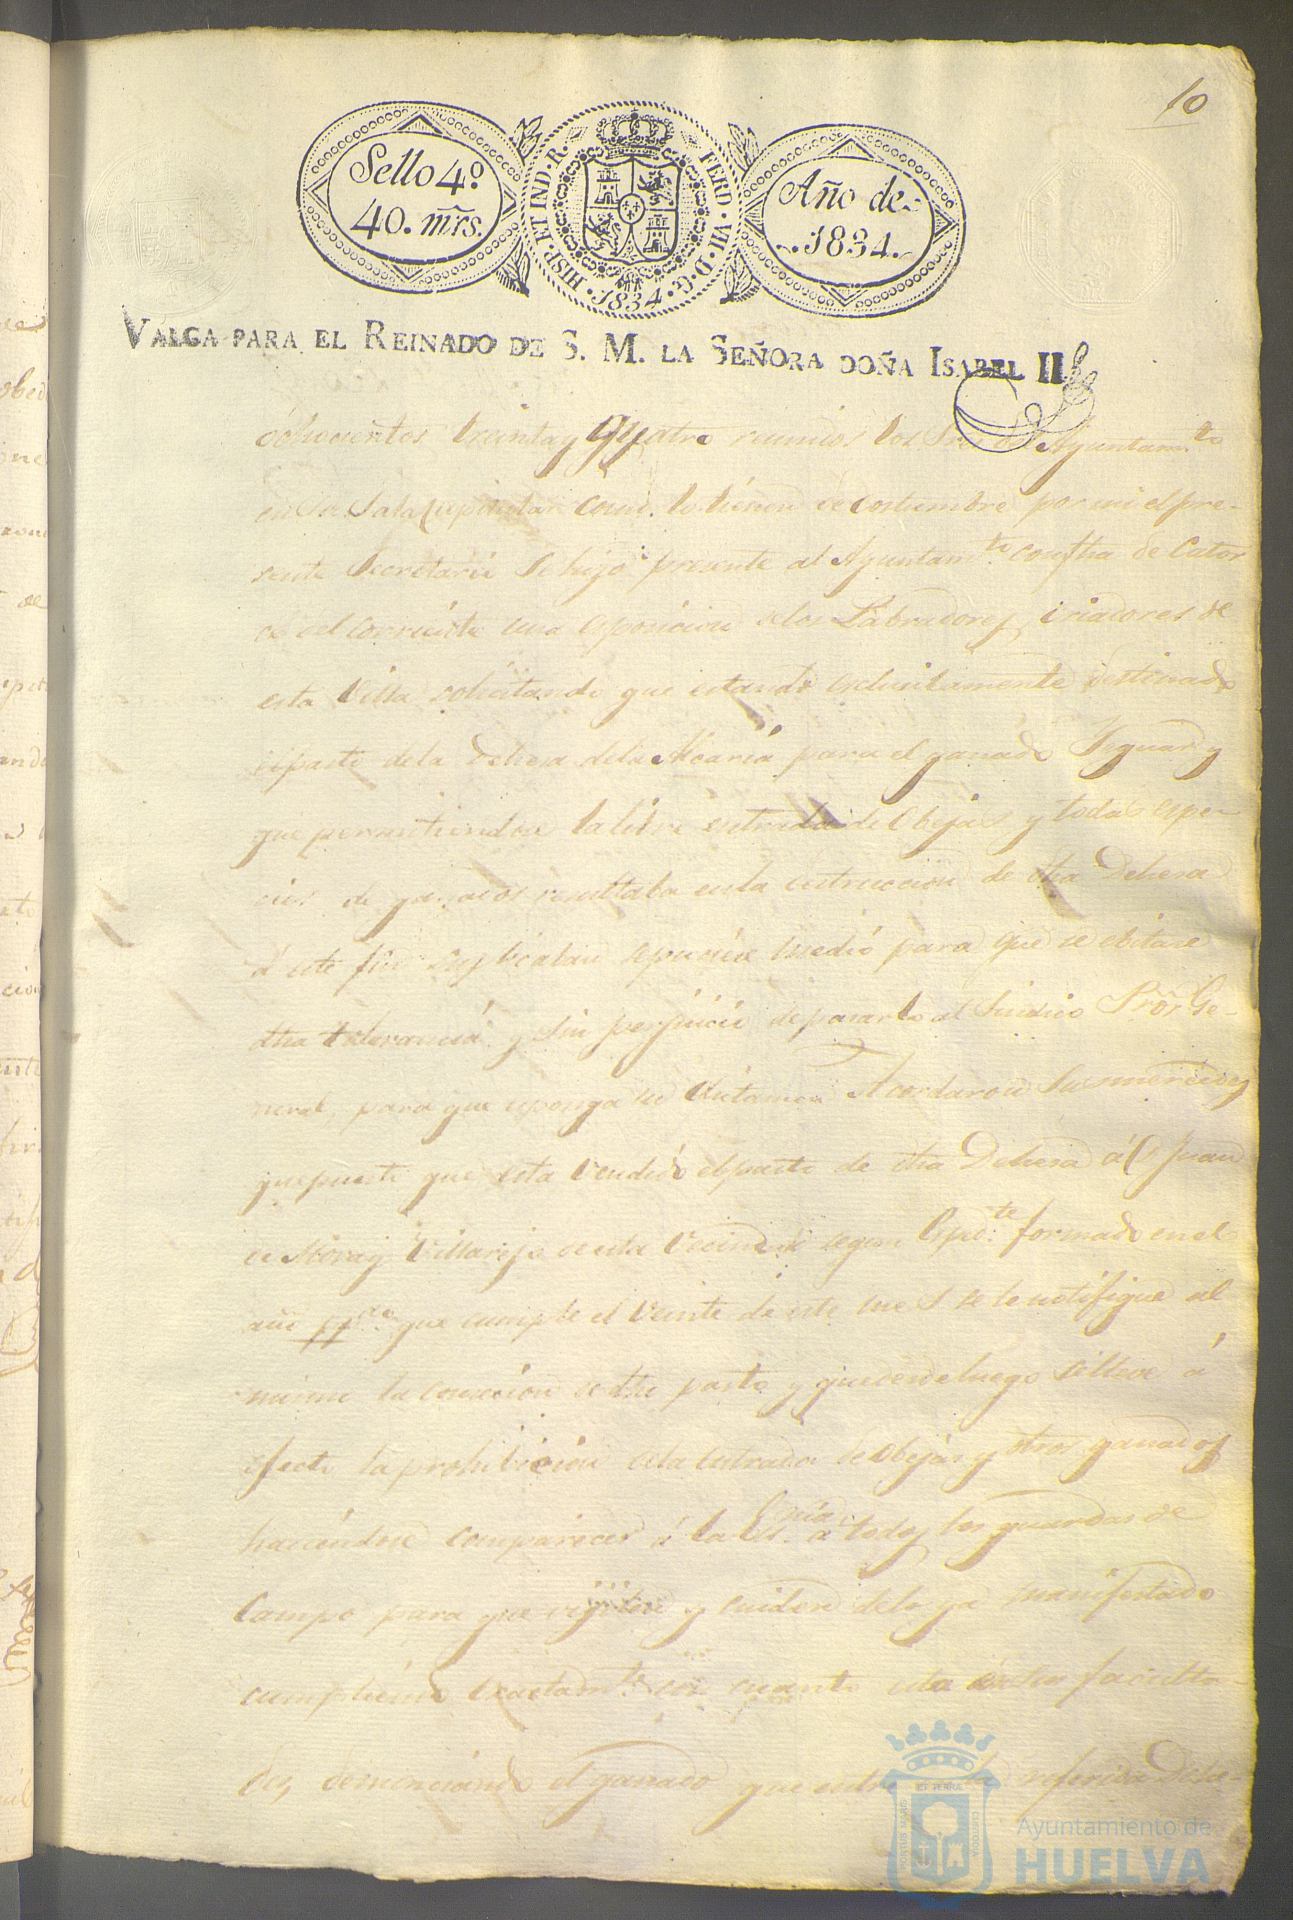 10
Sello 4º. 40. mrs.
HISP. ET IND. R. FERD. VII. D. G. 1834.
Año de 1834.
VALGA PARA EL REINADO DE S. M. LA SEÑORA DOÑA ISABEL II
ochocientos treinta y Quatro reunidos los Sres del Ayuntamto
en su Sala Capitular como lo tienen de costumbre por mi el pre-
sente Secretario se hizo presente al Ayuntamto con fha de Cator
ce del corriente una esposicion de los Labradores y criadores de
esta Villa solicitando que estando esclusibamente destinado
el pasto de la Dehesa de la Alcaria para el ganado Yeguar y
que permitiendose la libre entrada de Obejas y todas espe-
cies de ganados resultaba en la destruccion de dha Dehesa
á este fin suplicaban se pusiese medio para que se ebitase
dha tolerancia y sin perjuicio de pasarlo al Sindico Pror Ge-
neral, para que esponga su Dictamen Acordaron Sus mercedes
que puesto que esta vendido el pasto de dha Dehesa á Dn Juan
de Mora y Villarejo de esta Vecindad segun Espdte formado en el
año ppdo que cumple el Veinte de este mes se le notifique al
mismo la conclusion de dho pasto y que desde luego se lleve á
efecto la prohibicion de la entrada de Obejas y otros ganados
haciendose comparecer á la Essnia á todos los guardas de
Campo para que vigilen y cuiden de lo ya manifestado
cumpliendo exactamte con cuanto esta en sus faculta-
des, denunciando el ganado que entre en la referida Dehe-
FERRAE
PORTUS MARIS
CUSTODIA
Ayuntamiento de
HUELVA